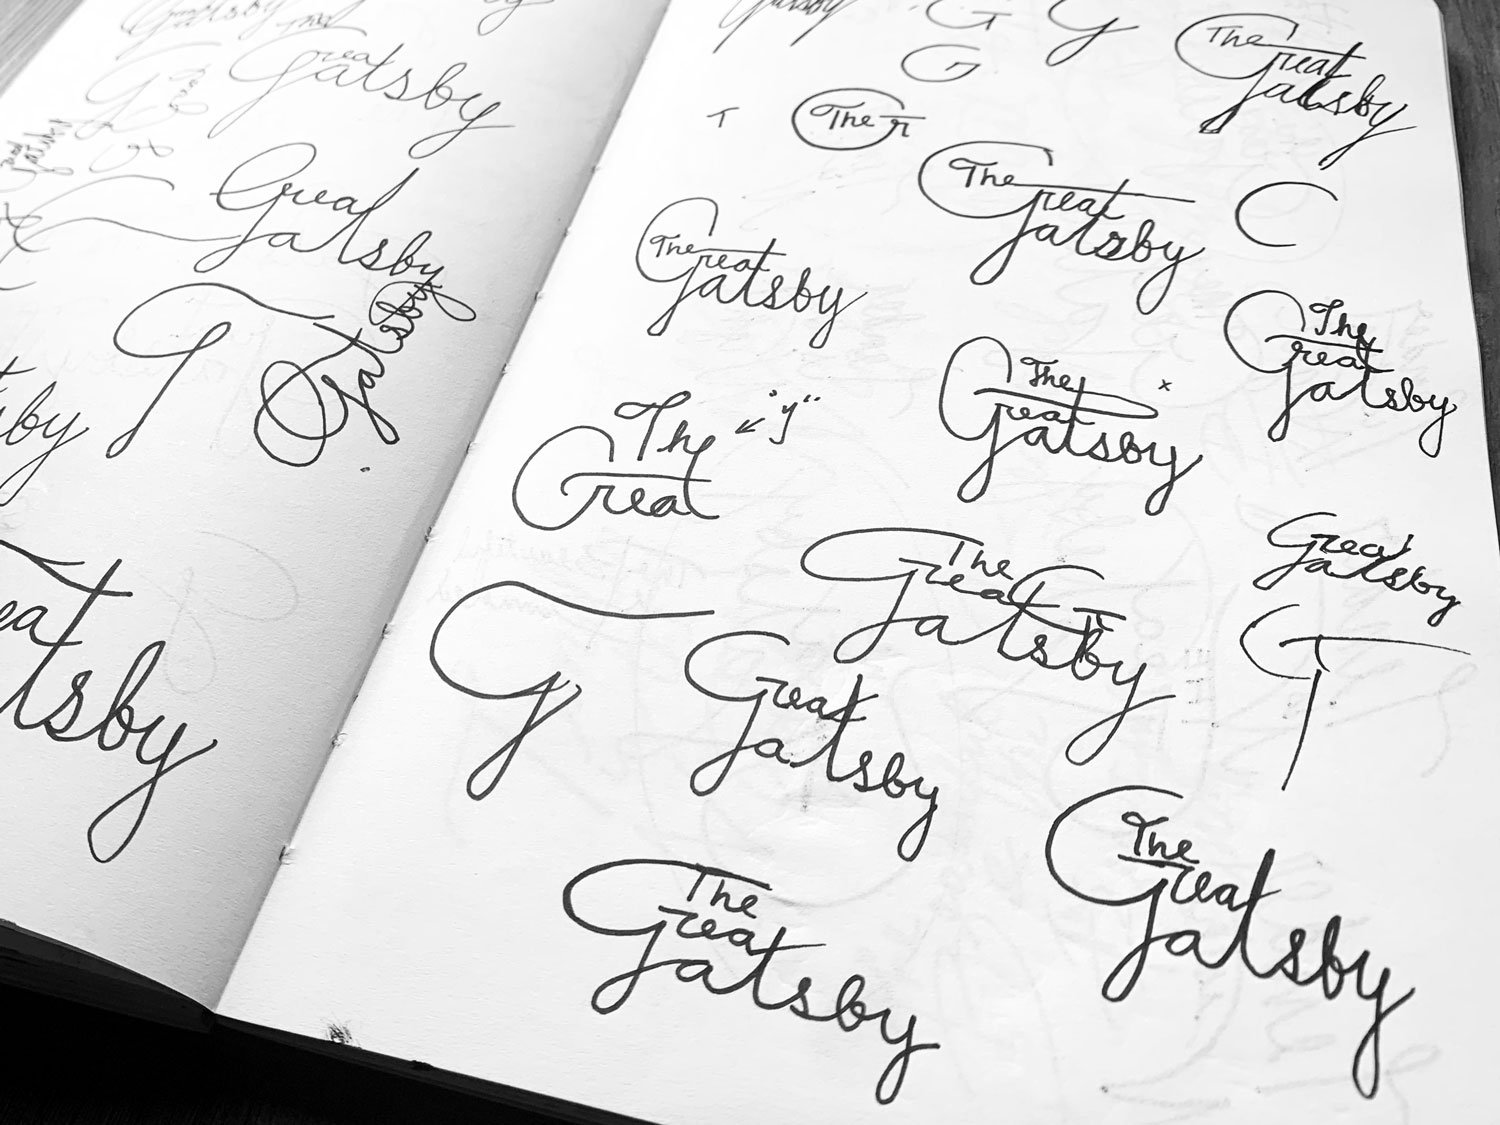 Great
Gatsby
Great
Gatsby
Gatsby
G
tsby
eat
tsby
Gatsby
G
G
G
The
Great
Gatsby
T
The r
The
Great
Gatsby
C
The
Great
Gatsby
The
Great
Gatsby
The
Great
Gatsby
x
The
Great
"y"
The
Great
Gatsby
Great
Gatsby
G
Great
Gatsby
The
Great
Gatsby
The
Great
Gatsby